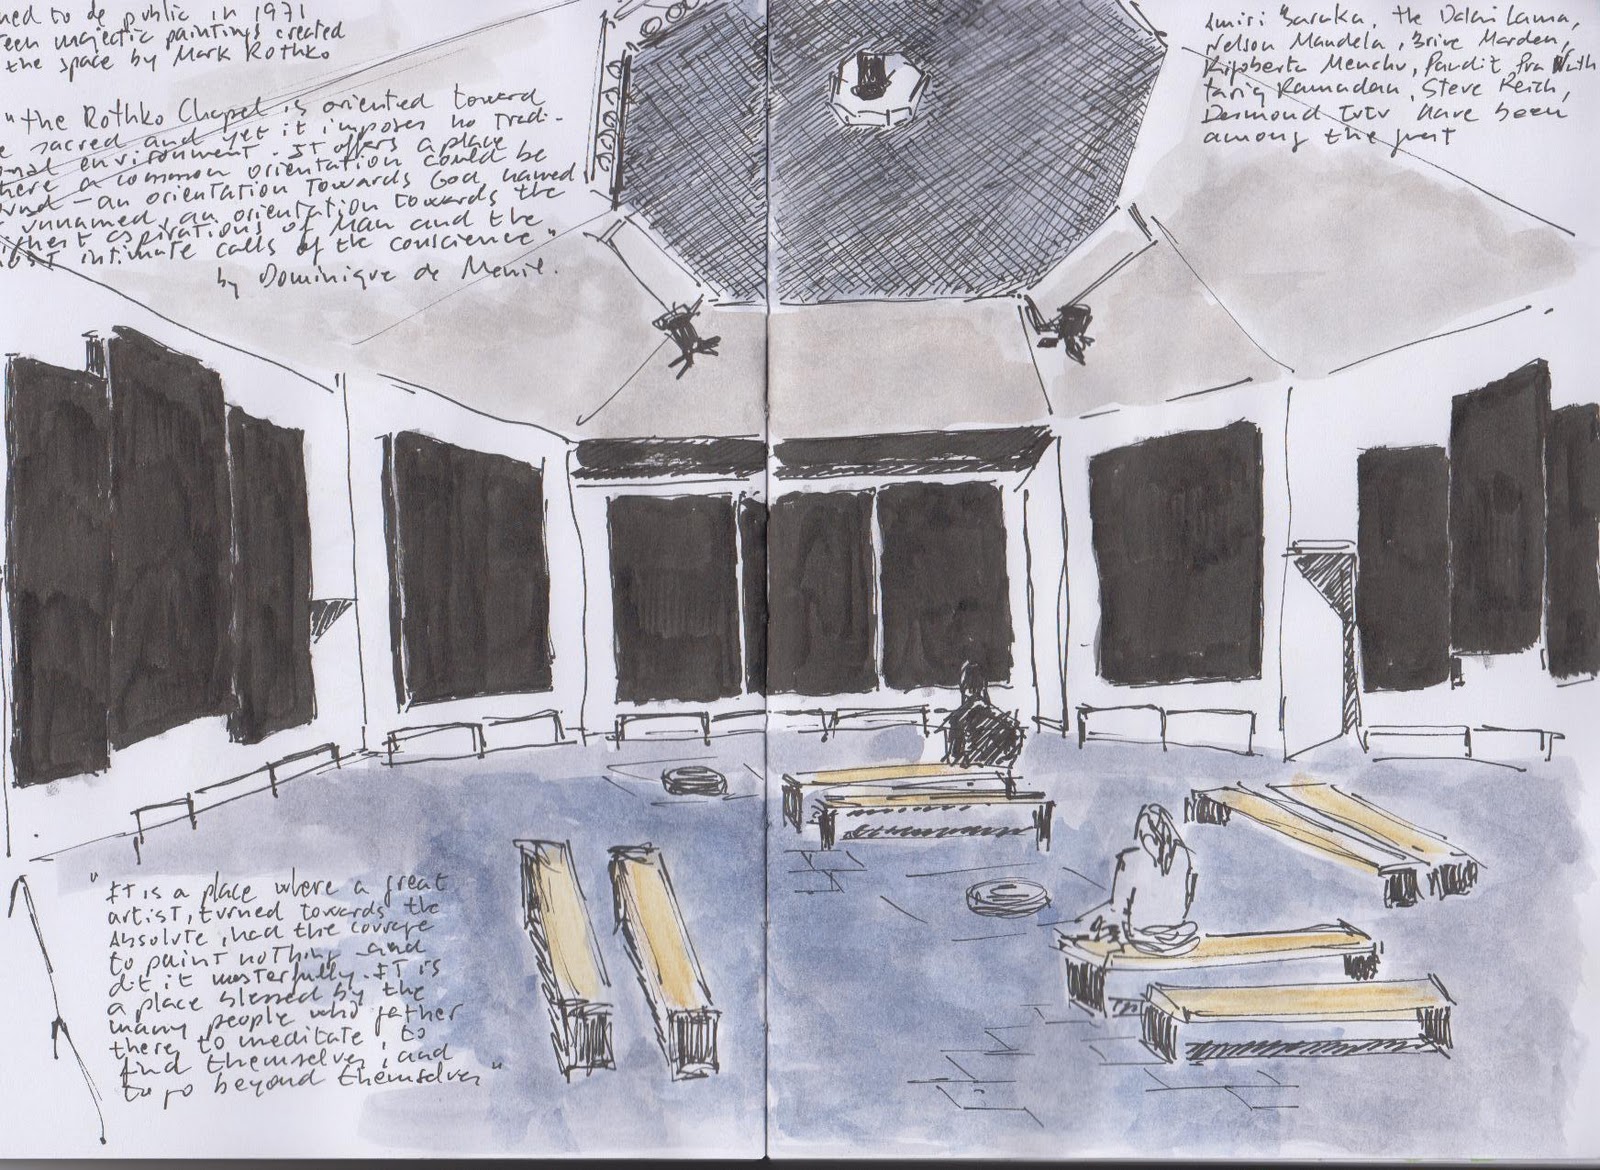 ned to de public in 1971
teen majectic paintings created
the space by Mark Rothko
"the Rothko Chapel is oriented toward
e sacred and yet it imposes no tradi-
onal environment. IT offers a place
here a common orientation could be
ound - an orientation towards God named
r unnamed, an orientation towards the
ghest aspirations of Man and the
ost intimate calls of the conscience"
by Dominique de Menil.
Amiri Baraka, the Dalai Lama,
Nelson Mandela, Brice Marden,
Rigoberta Menchu, Pandit Pra Nath
Tariq Ramadan, Steve Reich,
Desmond Tutu have been
among the guest
"IT is a place where a great
artist, turned towards the
Absolute, had the courage
to paint nothing - and
dit it masterfully. IT is
a place blessed by the
many people who gather
there to meditate, to
find themselves, and
to go beyond themselves"